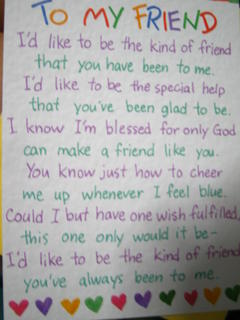 TO MY FRIEND
I'd like to be the kind of friend
that you have been to me.
I'd like to be the special help
that you've been glad to be.
I know I'm blessed for only God
can make a friend like you.
You know just how to cheer
me up whenever I feel blue.
Could I but have one wish fulfilled,
this one only would it be-
I'd like to be the kind of friend
you've always been to me.